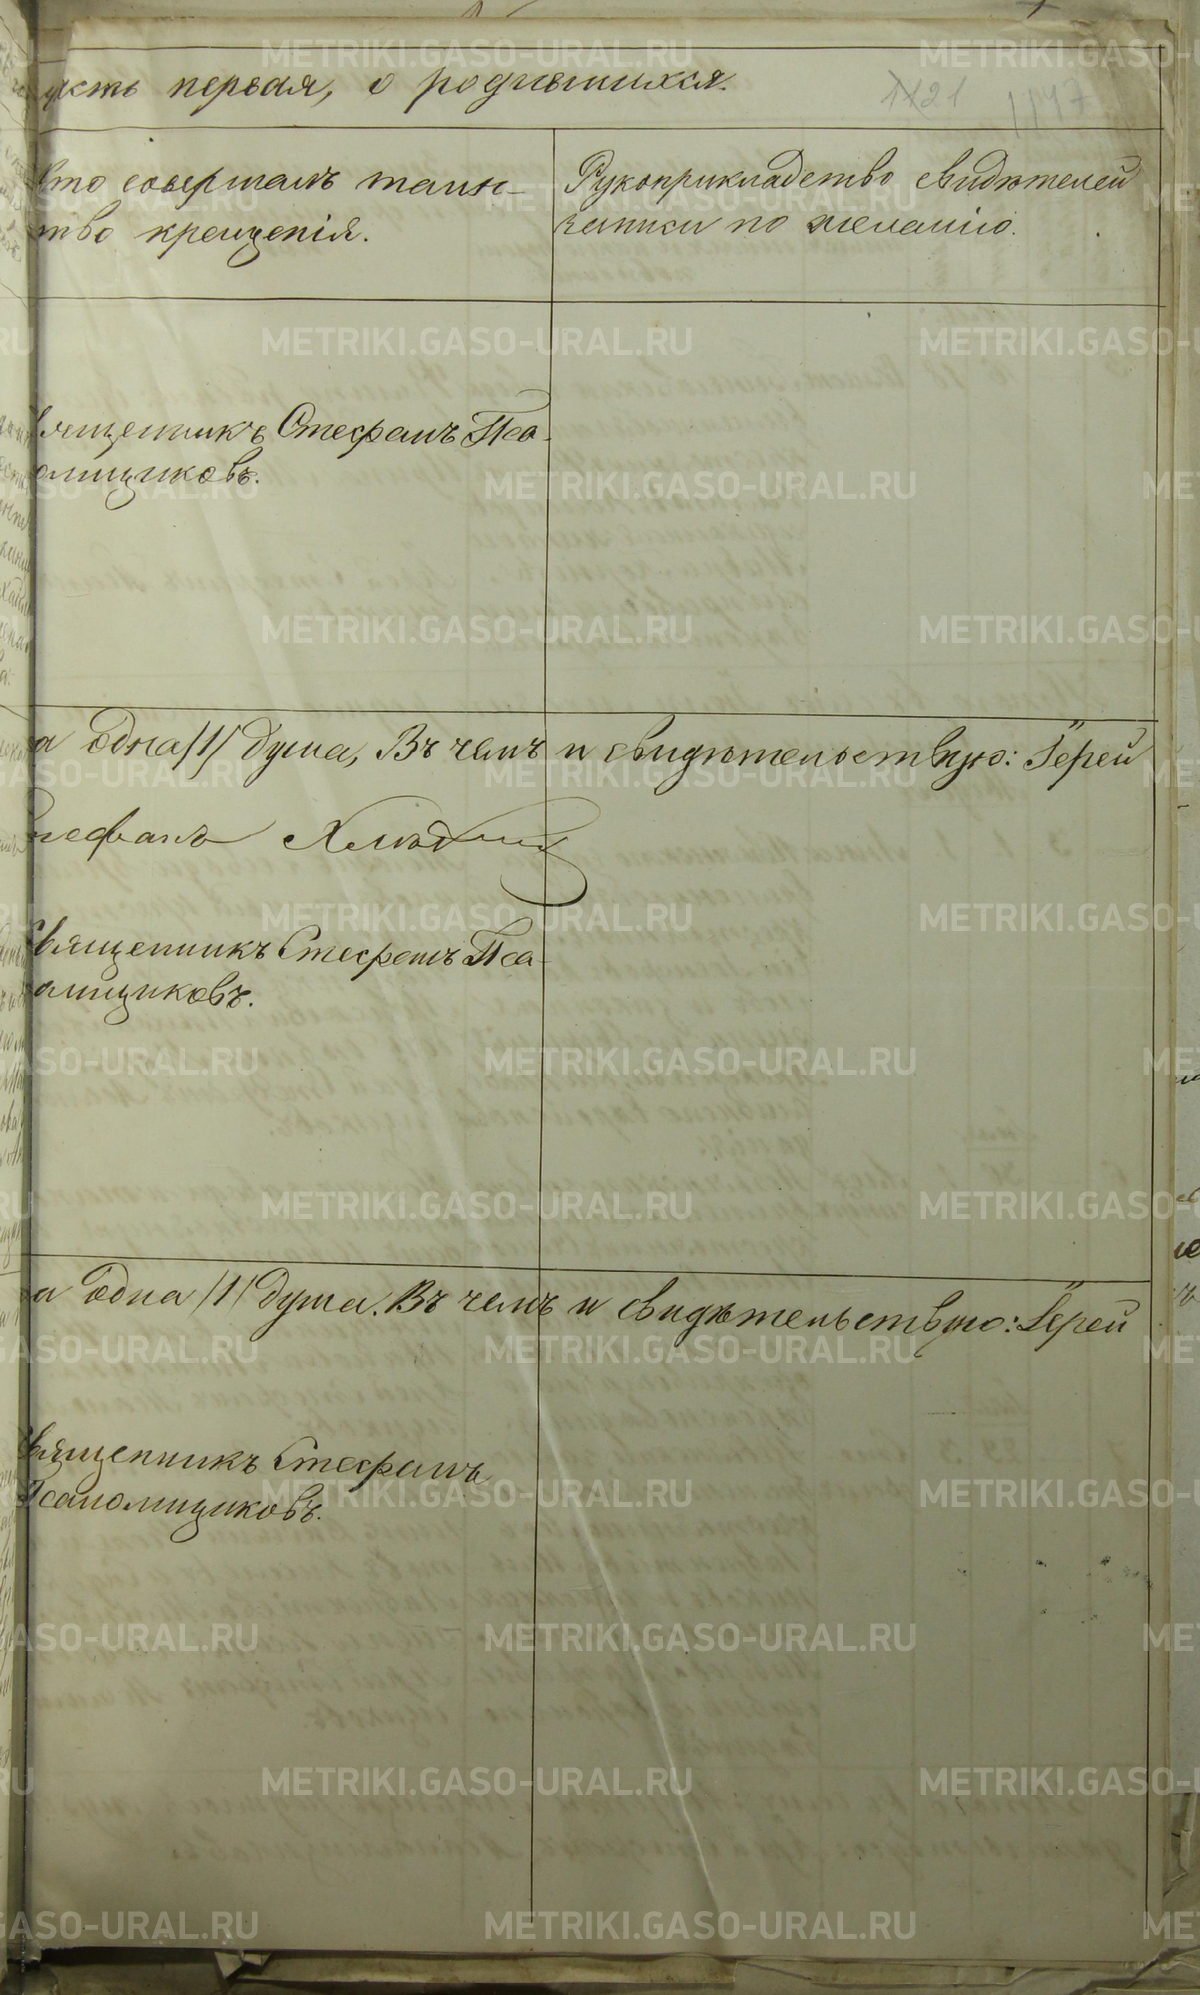 асть первая, о родившихся.
1121 1117
Кто совершалъ таин-
ство крещенія.
Рукоприкладство свидѣтелей
записи по желанію.
Священникъ Стефанъ Пса-
ломщиковъ.
а Одна /1/ душа, Въ чемъ и свидѣтельствую: Іерей
Стефанъ
Священникъ Стефанъ Пса-
ломщиковъ.
а Одна /1/ душа. Въ чемъ и свидѣтельствую: Іерей
Священникъ Стефанъ
Псаломщиковъ.
METRIKI.GASO-URAL.RU